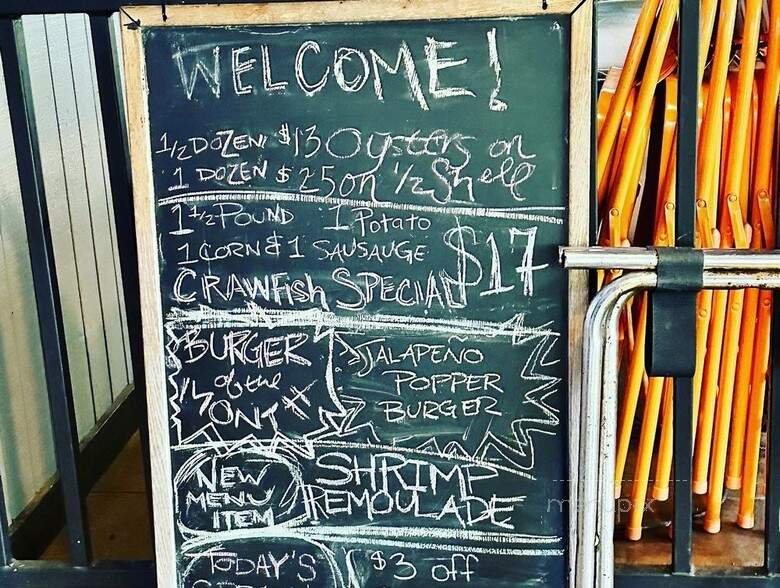 WELCOME!
1/2 DOZEN $13 Oysters on
1 DOZEN $25 on 1/2 Shell
1 1/2 POUND 1 Potato
1 CORN & 1 SAUSAUGE $17
CRAWFISH SPECIAL
BURGER
of the
MONTH
JALAPEÑO
POPPER
BURGER
NEW
MENU
ITEM
SHRIMP
REMOULADE
TODAY'S
$3 off
menupix